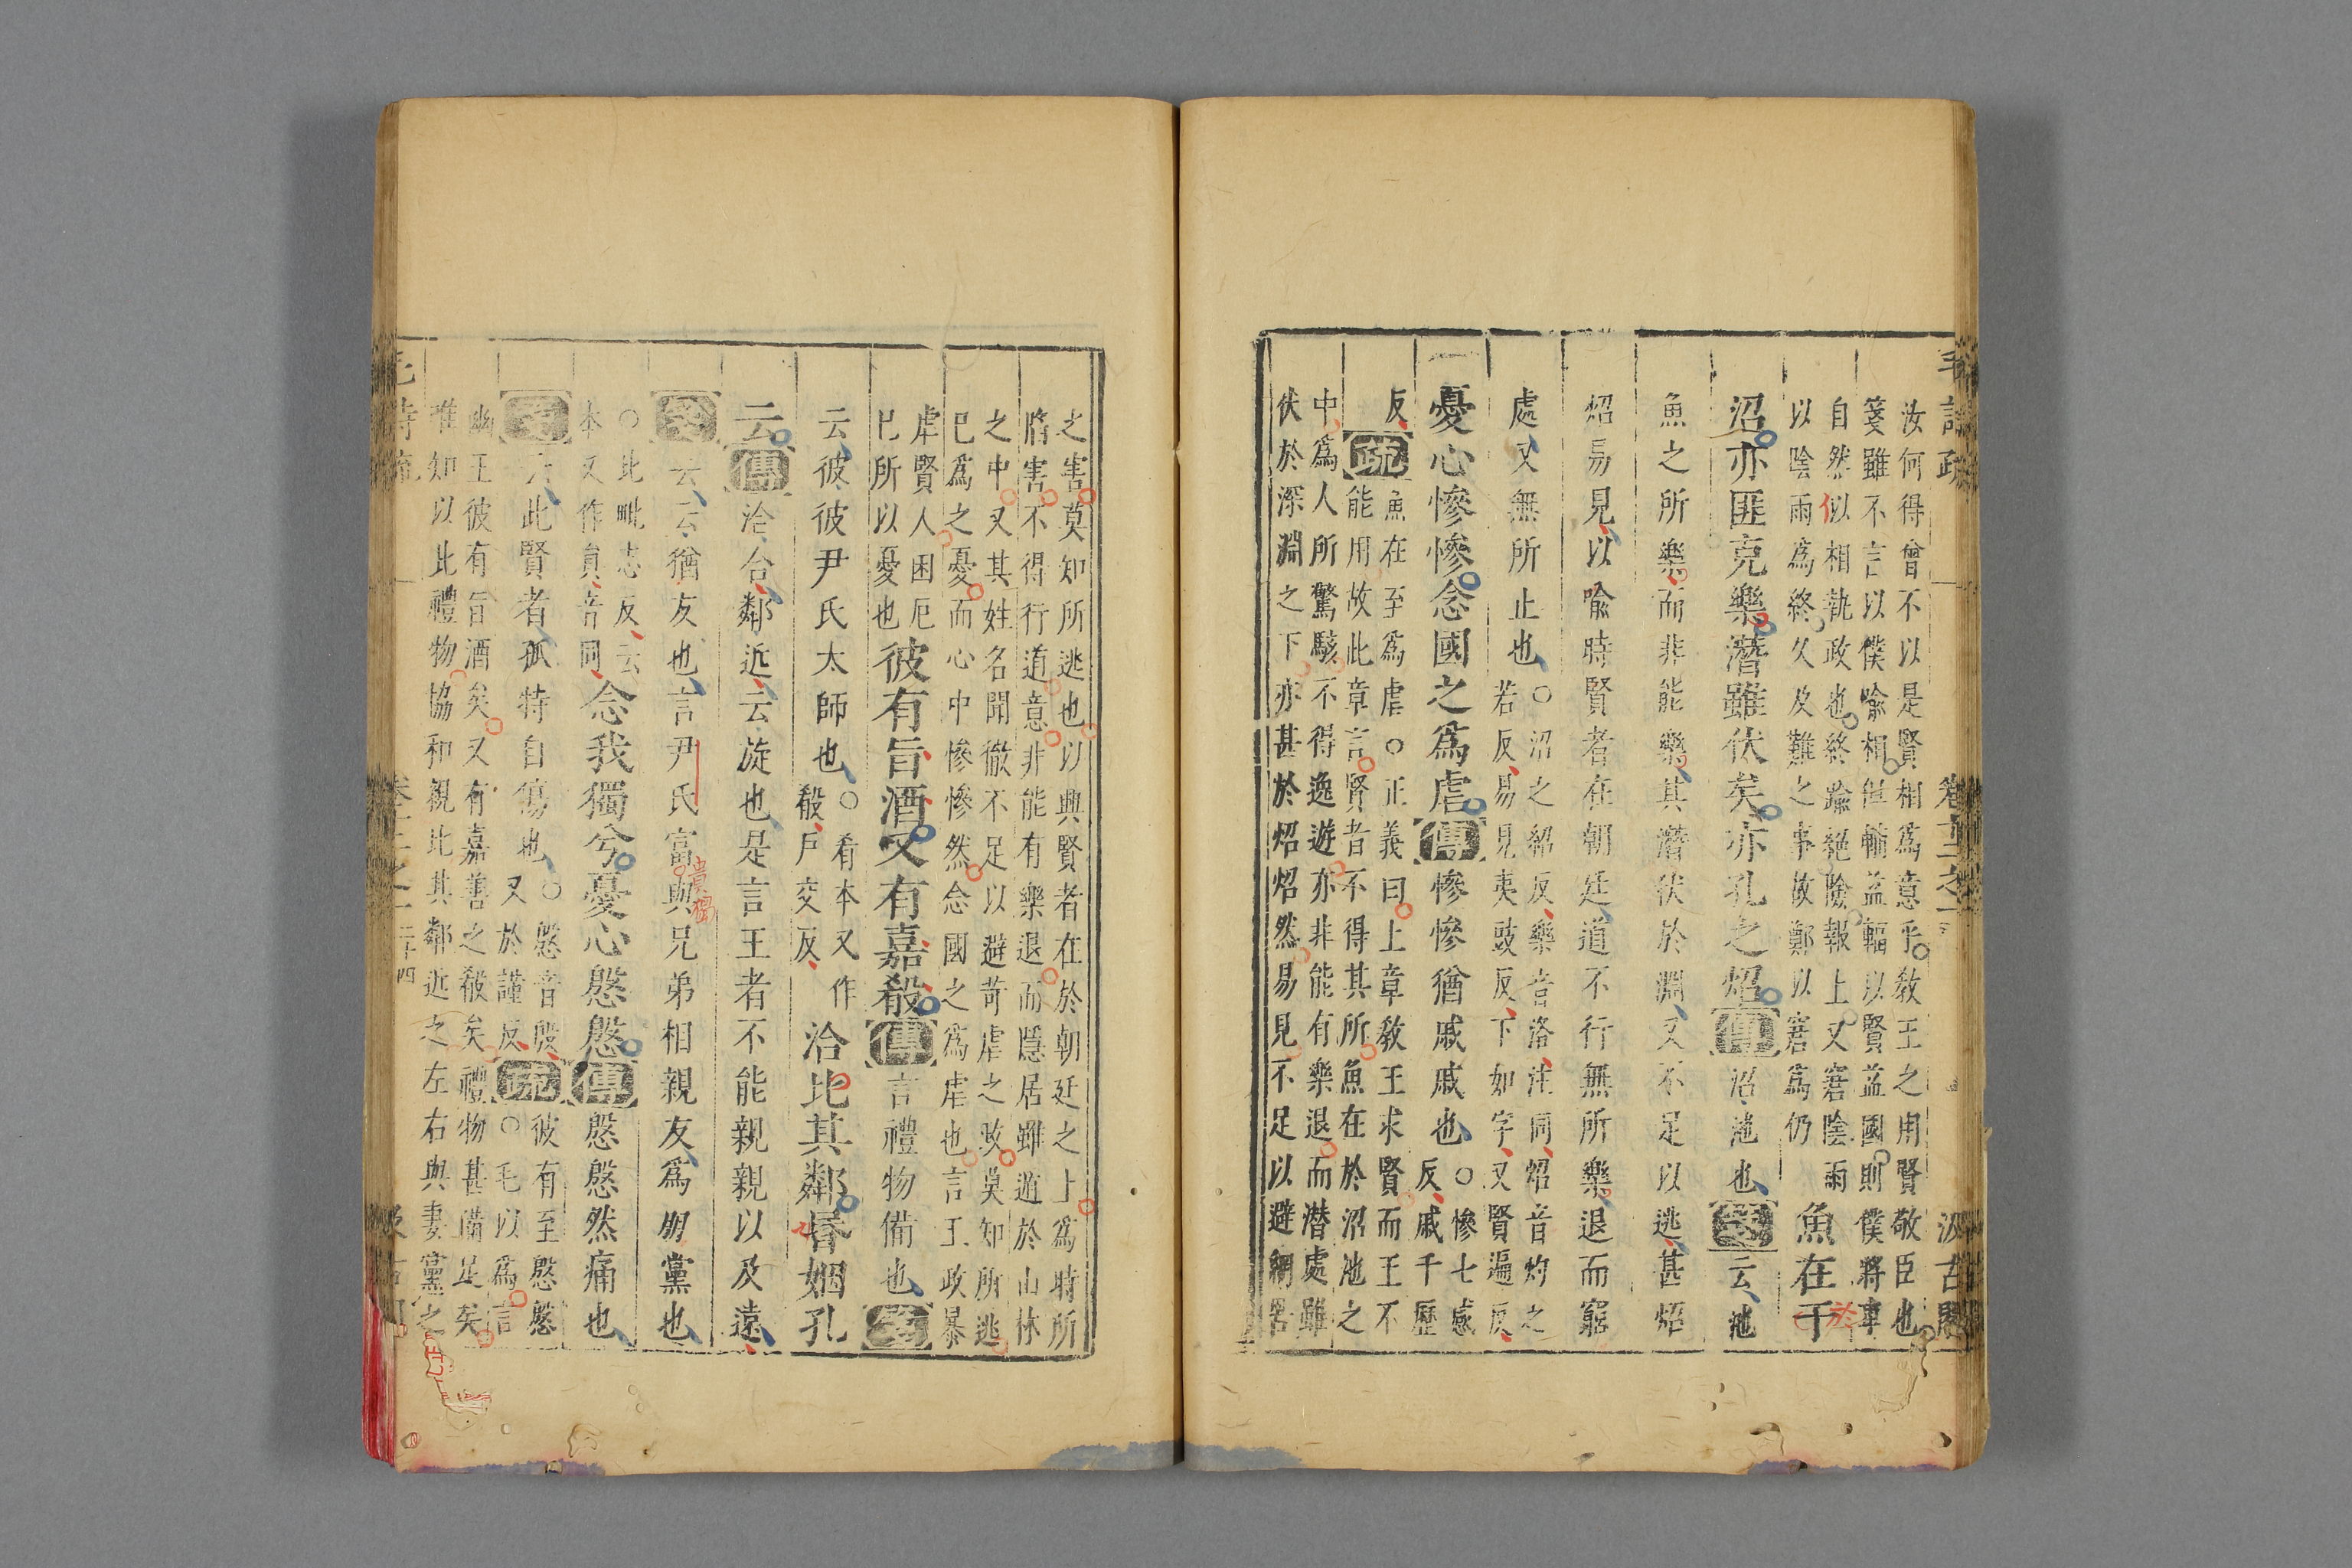 毛詩疏 卷十二之一 汲古閣
汝何得曾不以是賢相爲意乎教王之用賢敬臣也
箋雖不言以僕喻相但輔益輻以賢益國則僕將車
自然似相執政也終踰絕險報上又窘陰雨
以陰雨爲終久及難之事故鄭以窘爲仍
魚在于
沼亦匪克樂潛雖伏矣亦孔之炤傳沼池也箋云池
魚之所樂而非能樂其潛伏於淵又不足以逃甚炤
炤易見以喻時賢者在朝廷道不行無所樂退而窮
處又無所止也
○沼之紹反樂音洛注同炤音灼之
若反易見夷豉反下如字又賢遍反
憂心慘慘念國之爲虐傳慘慘猶戚戚也
○慘七感
反戚千歷
反
疏
魚在至爲虐○正義曰上章教王求賢而王不
能用故此章言賢者不得其所魚在於沼池之
中爲人所驚駭不得逸遊亦非能有樂退而潛處雖
伏於深淵之下亦甚於炤炤然易見不足以避網罟
之害莫知所逃也以興賢者在於朝廷之上爲時所
陷害不得行道意非能有樂退而隱居雖遁於山林
之中又其姓名聞徹不足以避苛虐之政莫知所逃
巳爲之憂而心中慘慘然念國之爲虐也言王政暴
虐賢人困厄
巳所以憂也
彼有旨酒又有嘉殽傳言禮物備也箋
云彼彼尹氏太師也
○肴本又作
殽戶交反
洽比其鄰昏姻孔
云傳洽合鄰近云旋也是言王者不能親親以及遠
箋云云猶友也言尹氏富與兄弟相親友爲朋黨也
○比毗志反云
本又作員音同
念我獨兮憂心慇慇傳慇慇然痛也
箋云此賢者孤特自傷也
○慇音殷
又於謹反
疏
彼有至慇慇
○毛以爲言
幽王彼有旨酒矣又有嘉善之殽矣禮物甚備足矣
唯知以此禮物協和親比其鄰近之左右與妻黨之
毛詩疏 卷十二之一 二十四